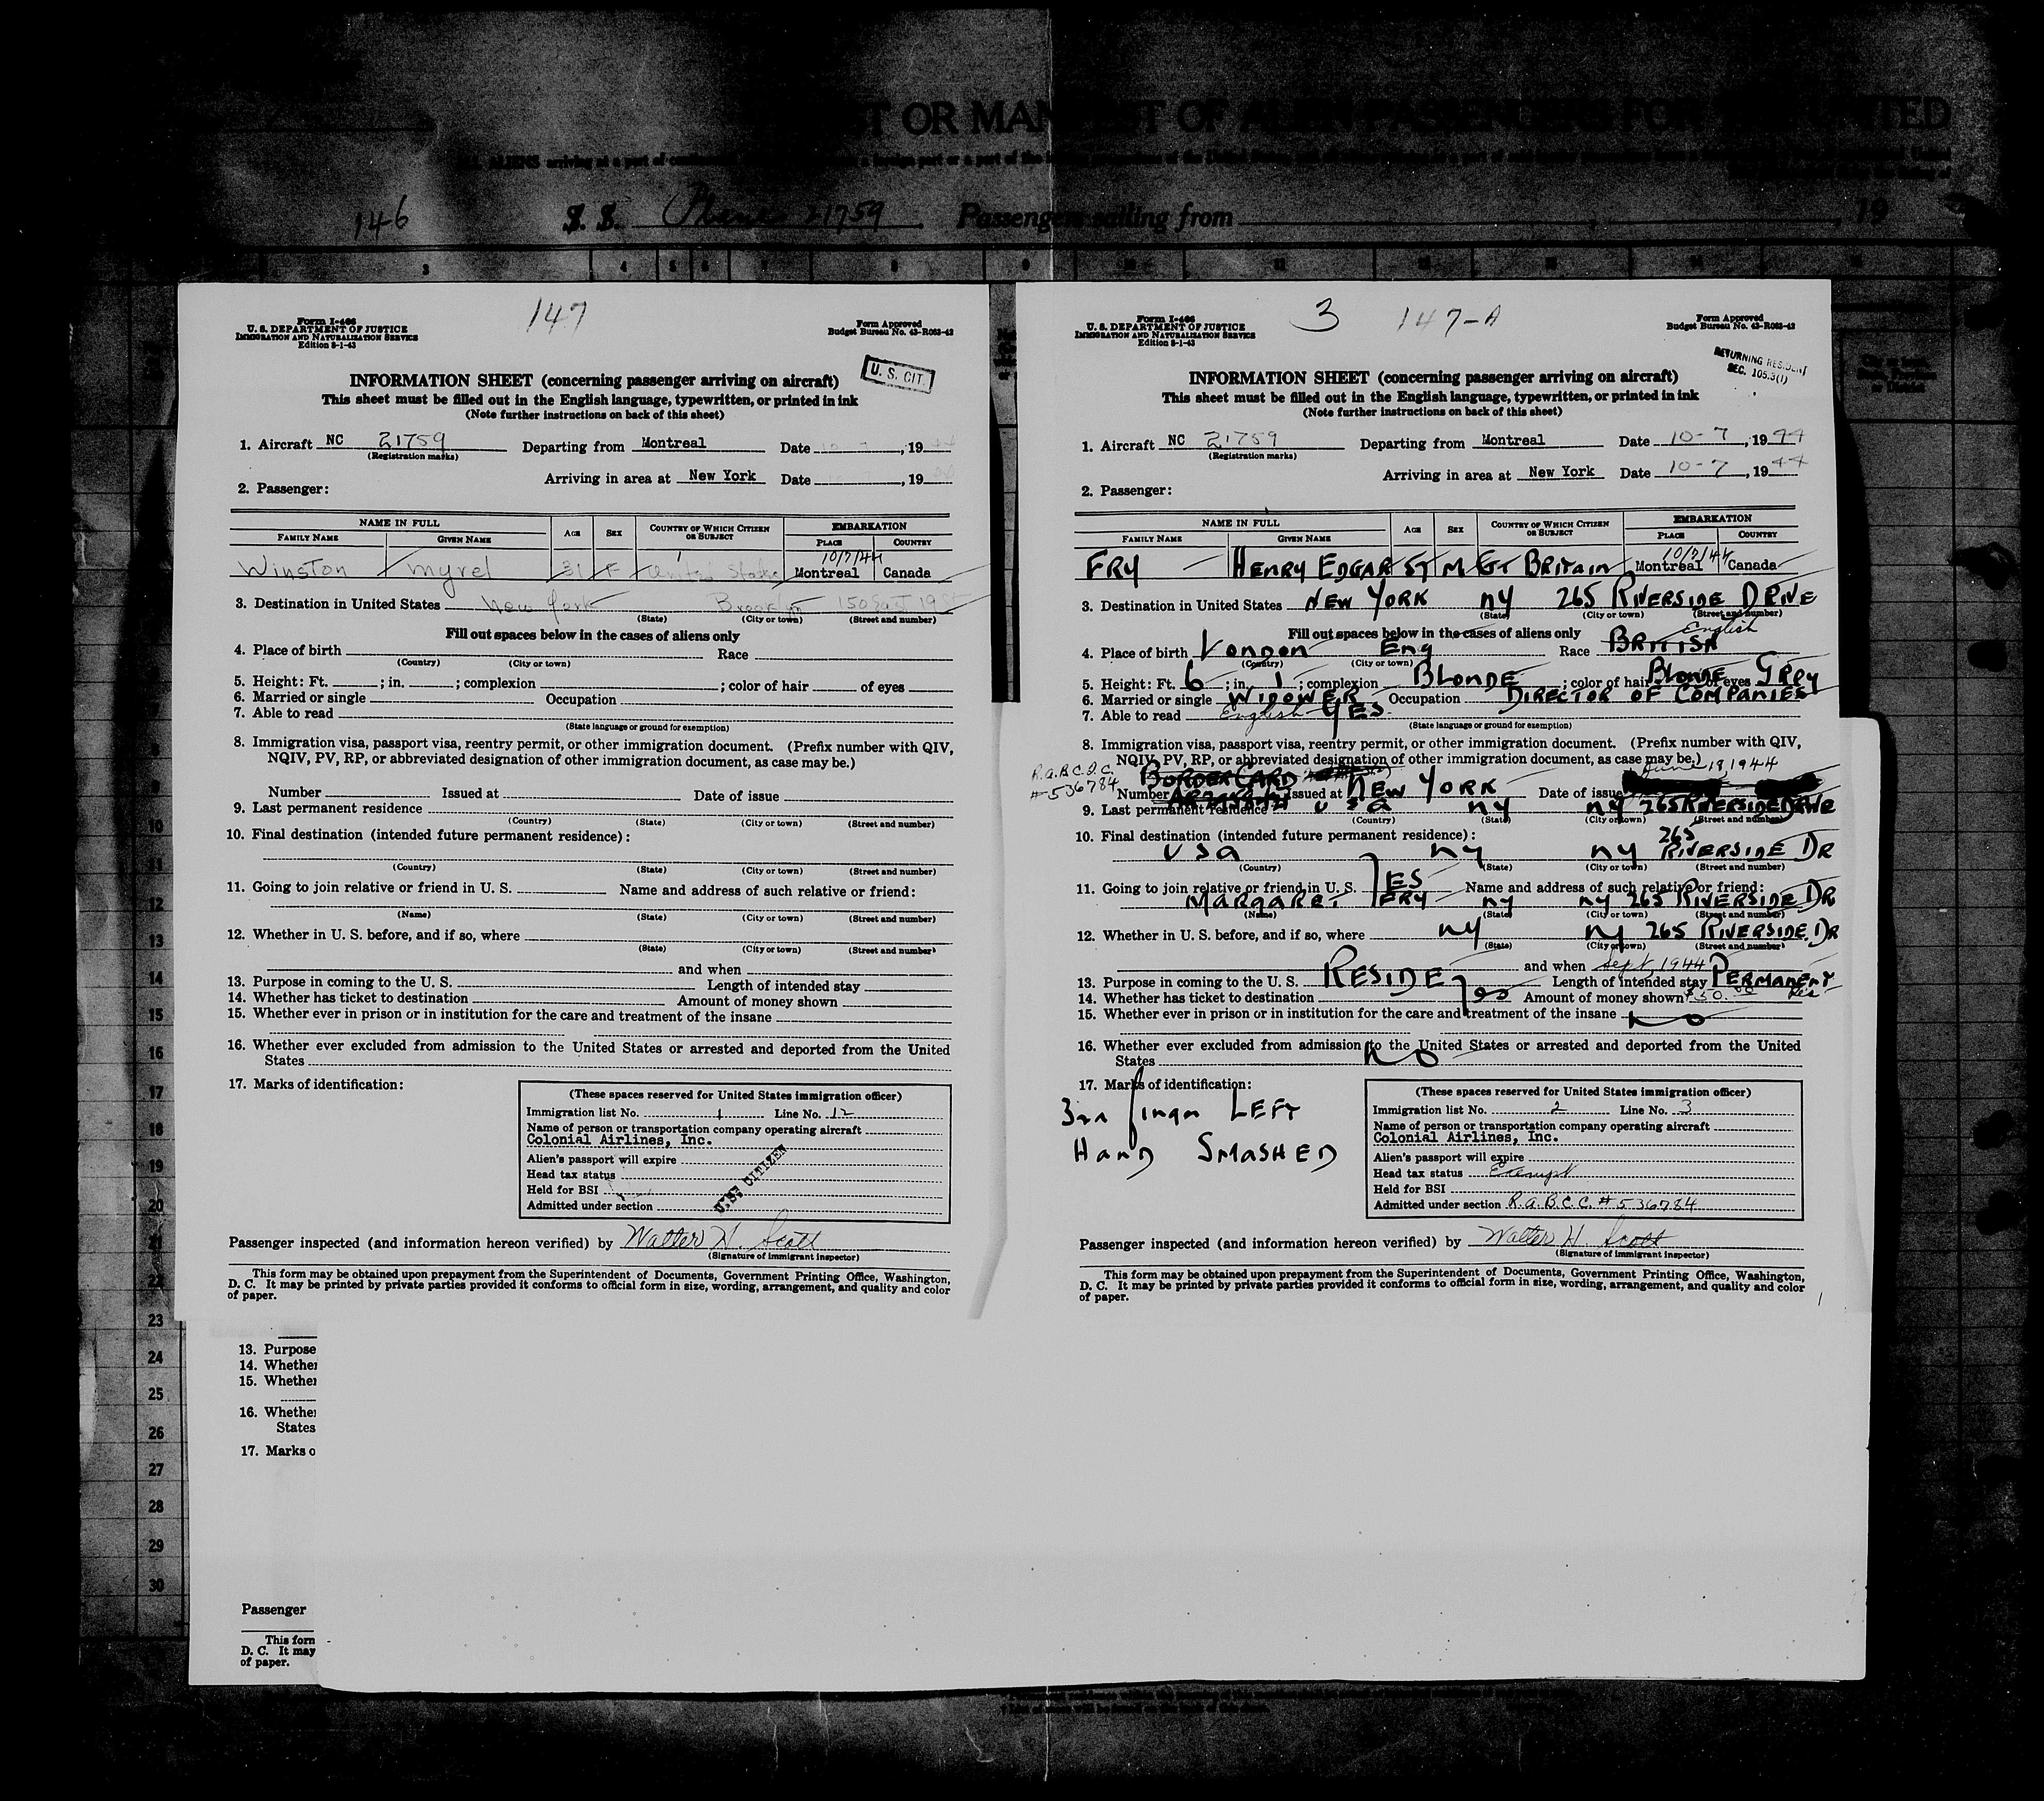 ST OR MANIFEST OF ALIEN PASSENGERS FOR THE UNITED
146 S. S. Plane 21759 Passengers sailing from , 19
3 4 5 6 7 8 9 10 11 12 13 14 15
147
Form I-466
U. S. DEPARTMENT OF JUSTICE
IMMIGRATION AND NATURALIZATION SERVICE
Edition 8-1-43
Form Approved
Budget Bureau No. 43-R063-42
U. S. CIT.
INFORMATION SHEET (concerning passenger arriving on aircraft)
This sheet must be filled out in the English language, typewritten, or printed in ink
(Note further instructions on back of this sheet)
1. Aircraft NC 21759 Departing from Montreal Date 10-7, 1944
(Registration marks)
Arriving in area at New York Date , 19
2. Passenger:
NAME IN FULL AGE SEX COUNTRY OF WHICH CITIZEN OR SUBJECT EMBARKATION
FAMILY NAME GIVEN NAME PLACE COUNTRY
10/7/44
Winston Myrel 31 F United States Montreal Canada
3. Destination in United States New York Brooklyn 150 East 19 St
(State) (City or town) (Street and number)
Fill out spaces below in the cases of aliens only
4. Place of birth Race
(Country) (City or town)
5. Height: Ft. ; in. ; complexion ; color of hair of eyes
6. Married or single Occupation
7. Able to read
(State language or ground for exemption)
8. Immigration visa, passport visa, reentry permit, or other immigration document. (Prefix number with QIV,
NQIV, PV, RP, or abbreviated designation of other immigration document, as case may be.)
Number Issued at Date of issue
9. Last permanent residence
(Country) (State) (City or town) (Street and number)
10. Final destination (intended future permanent residence):
(Country) (State) (City or town) (Street and number)
11. Going to join relative or friend in U. S. Name and address of such relative or friend:
(Name) (State) (City or town) (Street and number)
12. Whether in U. S. before, and if so, where
(State) (City or town) (Street and number)
and when
13. Purpose in coming to the U. S. Length of intended stay
14. Whether has ticket to destination Amount of money shown
15. Whether ever in prison or in institution for the care and treatment of the insane
16. Whether ever excluded from admission to the United States or arrested and deported from the United
States
17. Marks of identification:
(These spaces reserved for United States immigration officer)
Immigration list No. 1 Line No. 12
Name of person or transportation company operating aircraft
Colonial Airlines, Inc.
Alien's passport will expire
Head tax status
Held for BSI
Admitted under section
U.S. CITIZEN
Passenger inspected (and information hereon verified) by Walter H. Scott
(Signature of immigrant inspector)
This form may be obtained upon prepayment from the Superintendent of Documents, Government Printing Office, Washington,
D. C. It may be printed by private parties provided it conforms to official form in size, wording, arrangement, and quality and color
of paper.
3 147-A
Form I-466
U. S. DEPARTMENT OF JUSTICE
IMMIGRATION AND NATURALIZATION SERVICE
Edition 8-1-43
Form Approved
Budget Bureau No. 43-R063-42
RETURNING RESIDENT
SEC. 105.3(1)
INFORMATION SHEET (concerning passenger arriving on aircraft)
This sheet must be filled out in the English language, typewritten, or printed in ink
(Note further instructions on back of this sheet)
1. Aircraft NC 21759 Departing from Montreal Date 10-7, 1944
(Registration marks)
Arriving in area at New York Date 10-7, 1944
2. Passenger:
NAME IN FULL AGE SEX COUNTRY OF WHICH CITIZEN OR SUBJECT EMBARKATION
FAMILY NAME GIVEN NAME PLACE COUNTRY
10/7/44
FRY HENRY EDGAR 57 M GT BRITAIN Montreal Canada
3. Destination in United States NEW YORK NY 265 RIVERSIDE DRIVE
(State) (City or town) (Street and number)
Fill out spaces below in the cases of aliens only English
4. Place of birth London Eng Race BRITISH
(Country) (City or town)
5. Height: Ft. 6 ; in. 1 ; complexion BLONDE ; color of hair BLONDE of eyes GREY
6. Married or single WIDOWER Occupation DIRECTOR OF COMPANIES
7. Able to read English YES
(State language or ground for exemption)
8. Immigration visa, passport visa, reentry permit, or other immigration document. (Prefix number with QIV,
NQIV, PV, RP, or abbreviated designation of other immigration document, as case may be.)
R.A.B.C.C. #536784 BORDER CARD June 18, 1944
Number Issued at NEW YORK Date of issue
9. Last permanent residence USA NY NY 265 RIVERSIDE DRIVE
(Country) (State) (City or town) (Street and number)
10. Final destination (intended future permanent residence):
USA NY NY 265 RIVERSIDE DR
(Country) (State) (City or town) (Street and number)
11. Going to join relative or friend in U. S. YES Name and address of such relative or friend:
MARGARET FRY NY NY 265 RIVERSIDE DR
(Name) (State) (City or town) (Street and number)
12. Whether in U. S. before, and if so, where NY NY 265 RIVERSIDE DR
(State) (City or town) (Street and number)
and when Sept, 1944
13. Purpose in coming to the U. S. RESIDE Length of intended stay PERMANENT
14. Whether has ticket to destination Yes Amount of money shown $50.00
15. Whether ever in prison or in institution for the care and treatment of the insane NO
16. Whether ever excluded from admission to the United States or arrested and deported from the United
States NO
17. Marks of identification:
3rd finger LEFT
HAND SMASHED
(These spaces reserved for United States immigration officer)
Immigration list No. 2 Line No. 3
Name of person or transportation company operating aircraft
Colonial Airlines, Inc.
Alien's passport will expire
Head tax status Exempt
Held for BSI
Admitted under section R.A.B.C.C. #536784
Passenger inspected (and information hereon verified) by Walter H. Scott
(Signature of immigrant inspector)
This form may be obtained upon prepayment from the Superintendent of Documents, Government Printing Office, Washington,
D. C. It may be printed by private parties provided it conforms to official form in size, wording, arrangement, and quality and color
of paper.
9
10
11
12
13
14
15
16
17
18
19
20
21
22
23
24
25
26
27
28
29
30
13. Purpose
14. Whether
15. Whether
16. Whether
States
17. Marks o
Passenger
This form
D. C. It may
of paper.